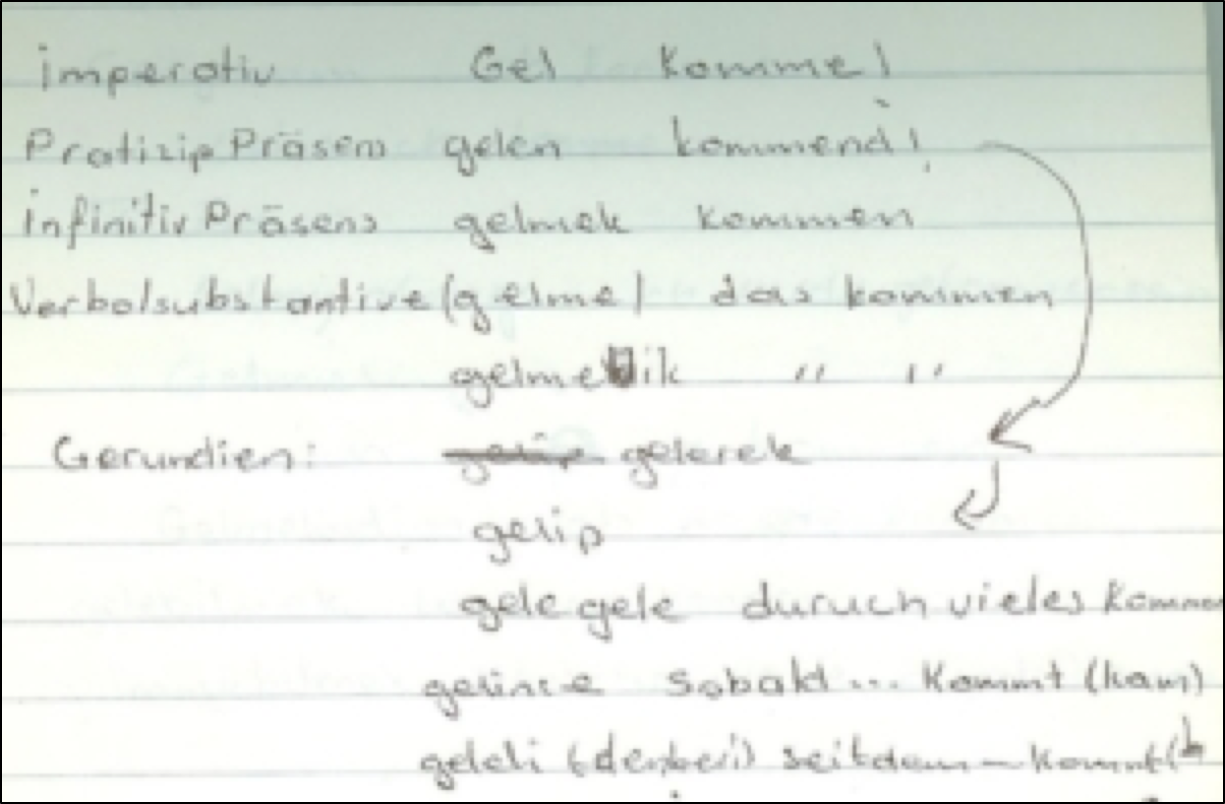 imperativ Gel Komme!
Pratizip Präsens gelen kommend!
infinitiv Präsens gelmek kommen
Verbalsubstantive (gelme) das kommen
gelmeklik " "
Gerundien: gelerek
gelip
gele gele duruch vieles Kommen
gelince Sobald... Kommt (kam)
geleli (denberi) seitdem - kommt (